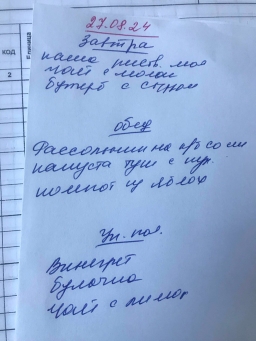 код
Единица
2
27.08.24
Завтра
каша рисов. мол
чай с молок
бутерб с сыром
обед
Рассольник на кур со см
капуста туш с кур.
компот из яблок
Уп. пол.
Винегрет
Булочка
чай с лимон